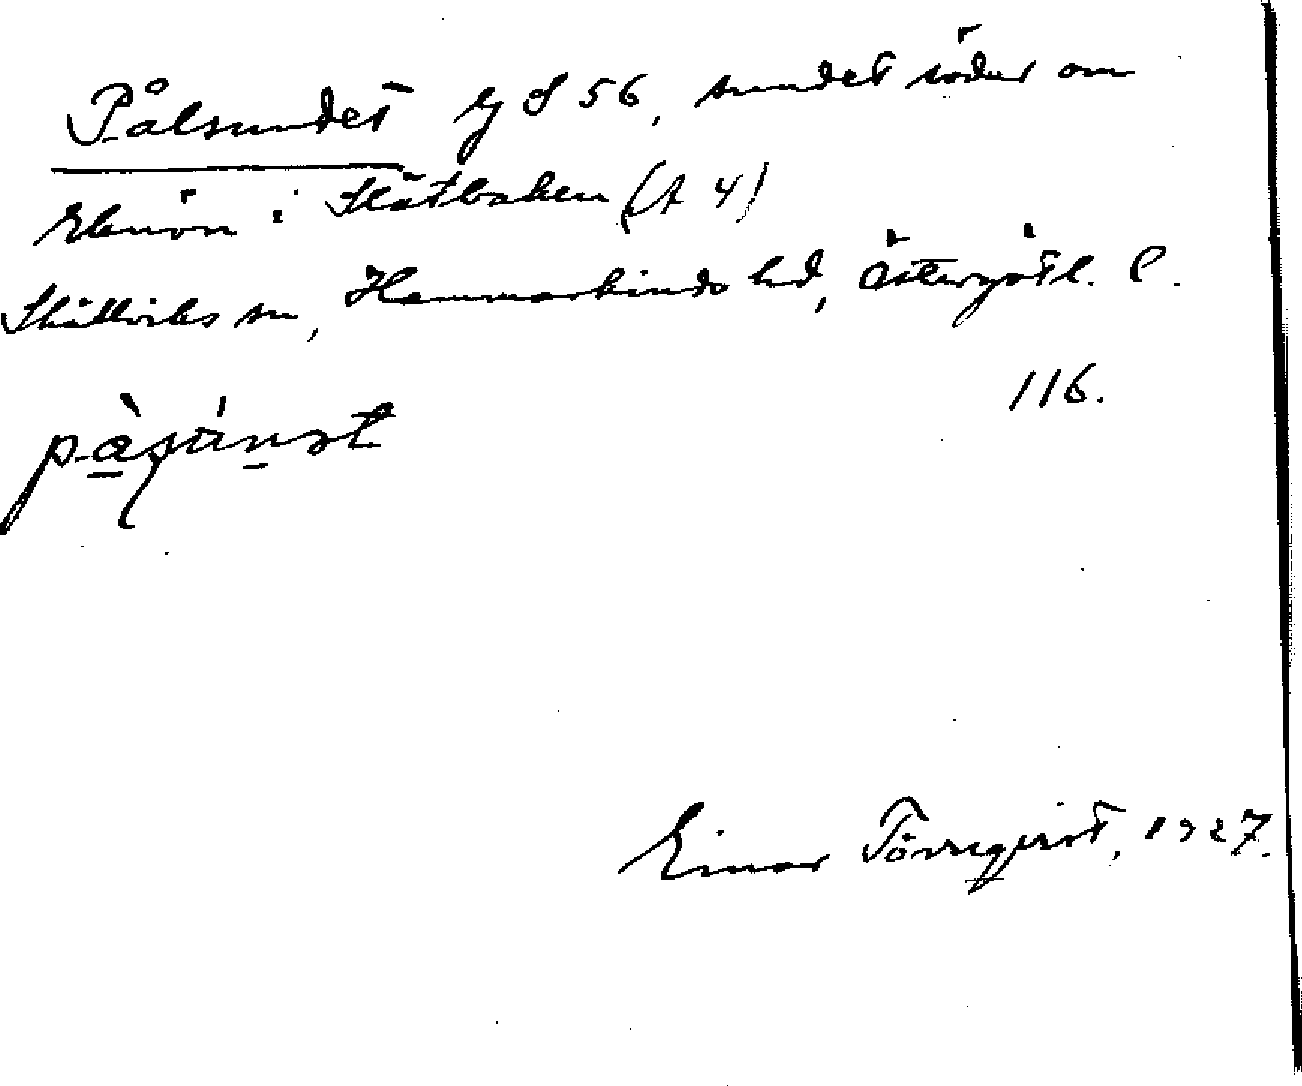 Pålsundet Gj d 56, sundet söder om
Ekenön i Slätbaken (A 4)
Skällviks sn, Hammarkinds hd, Östergötl. l.
116.
påsúnst
Einar Törnqvist, 1927.